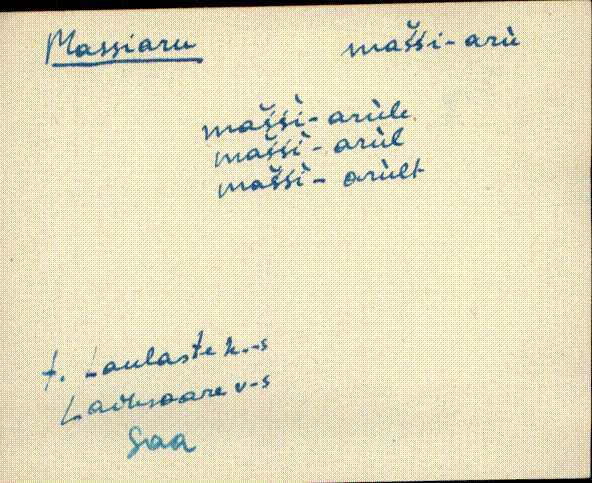 Massiaru mašši-arù
mašši-arùle
mašši-arùl
mašši-arùlt
t. Laulaste k.-s
Laiksaare v-s
Saa